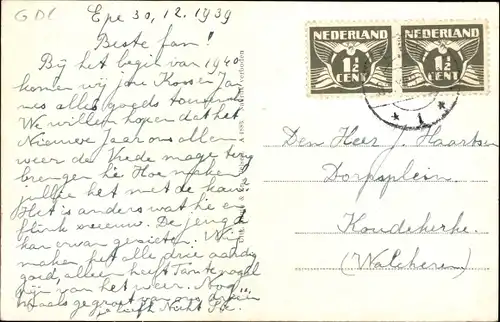 GDC
Epe 30, 12. 1939
Beste fam!
Bij het begin van 1940
komen wij jou
alles goeds
We willen hopen dat het
Nieuwe Jaar ons allen
weer de Vrede mage terug
brengen he Hoe maken
jullie het met de kou
Het is anders wat he en
flink sneeuw. De jeugd
kan ervan genieten. Wij
maken het alle drie aardig
goed, alleen heeft Tante nogal
pijn van het weer. Nog
maals gegroet van ons drieën
je Nicht
NEDERLAND
1½
CENT
NEDERLAND
1½
CENT
* 1 *
Den Heer J. Haartsen
Dorpsplein
Koudekerke.
(Walcheren)